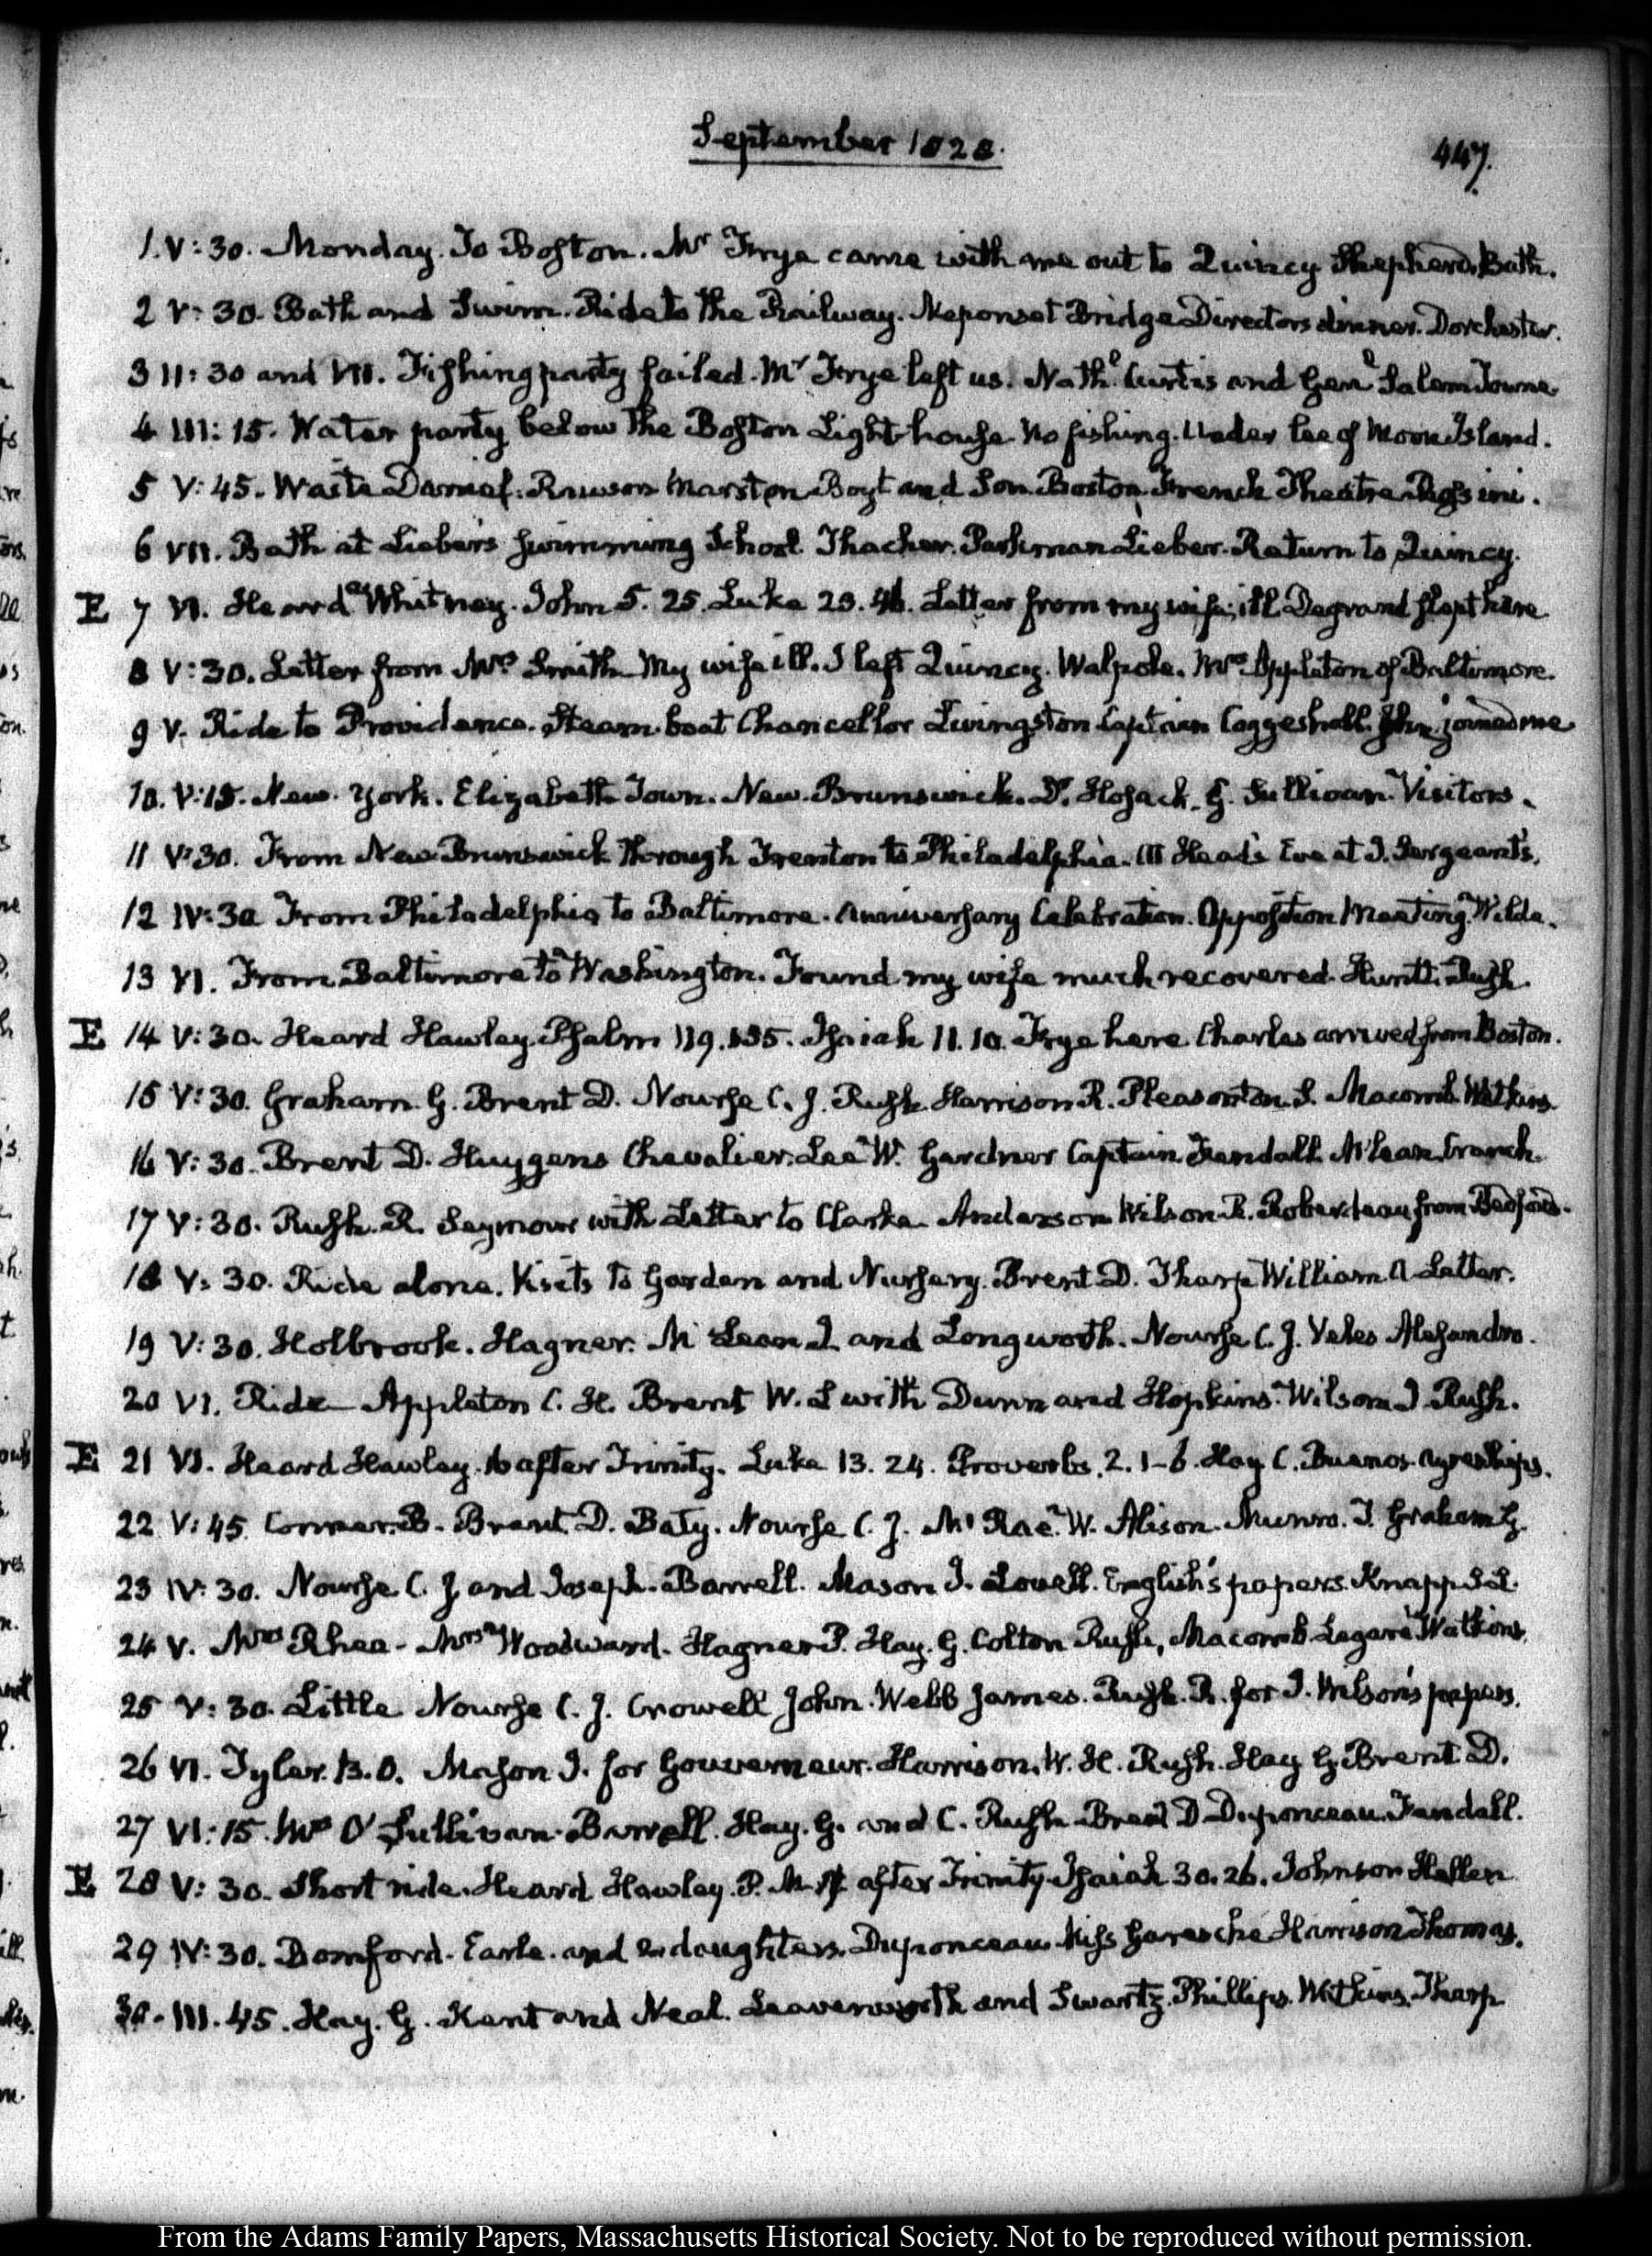 September 1828.
447.
1. V:30. Monday. To Boston. Mr Frye came with me out to Quincy Shepherd. Bath.
2 V:30. Bath and Swim. Ride to the Railway. Neponset Bridge Directors dinner. Dorchester.
3 II:30 and VII. Fishing party failed. Mr Frye left us. Nathl. Curtis and Genl Salem Towne
4 III:15. Water party below the Boston Light house No fishing. Under lee of Moon Island.
5 V:45. Waite Rawson Marston Boyt and Son. Boston. French Theatre Rossini.
6 VII. Bath at Lieber's swimming School. Thacher. Parkman Lieber. Return to Quincy.
E 7 VI. Heard Whitney. John 5. 25. Luke 23. 46. Letter from my wife; ill Degrand slept here
8 V:30. Letter from Mrs Smith My wife ill. I left Quincy. Walpole. Mrs Appleton of Baltimore.
9 V. Ride to Providence. Steam-boat Chancellor Livingston Captain Coggeshall. John joined me
10. V:15. New-York. Elizabeth Town. New-Brunswick. D. Hosack. G. Sullivan. Visitors.
11 V:30. From New-Brunswick through Trenton to Philadelphia. Head's Eve at J. Sergeant's.
12 IV:30 From Philadelphia to Baltimore. Anniversary Celebration. Opposition Meeting. Wilde.
13 VI. From Baltimore to Washington. Found my wife much recovered. Huntt. Rush.
E 14 V:30. Heard Hawley. Psalm 119. 135. Isaiah 11. 10. Frye here. Charles arrived from Boston.
15 V:30. Graham. G. Brent D. Nourse C. J. Rush. Harrison R. Pleasonton. S. Macomb. Watkins.
16 V:30. Brent D. Huygens Chevalier. Lee W. Gardner Captain. Kendall. McLean. Cranch.
17 V:30. Rush. R. Seymour with Letter to Clarke. Anderson Wilson. R. Roberdeau from Bedford.
18 V:30. Ride alone. Visits to Garden and Nursery. Brent D. Tharp William A Letter.
19 V:30. Holbrook. Hagner. McLean J. and Longworth. Nourse C. J. Veles Alejandro.
20 VI. Ride Appleton C. H. Brent W. L with Dunn and Hopkins. Wilson J. Rush.
E 21 VI. Heard Hawley. 16 after Trinity. Luke 13. 24. Proverbs. 2. 1-6. Hay C. Buenos-Ayres ships.
22 V:45. Conner. B. Brent. D. Baty. Nourse C. J. McRae. W. Alison. Munro. T. Graham G.
23 IV:30. Nourse C. J and Joseph. Barrell. Mason J. Lovell. English's papers. Knapp S. L.
24 V. Mrs Rhea. Mrs Woodward. Hagner P. Hay. G. Colton Rush, Macomb. Legaré Watkins.
25 V:30. Little Nourse C. J. Crowell John. Webb James. Rush. R. for J. Wilson's papers.
26 VI. Tyler. B. O. Mason J. for Gouverneur. Harrison. W. H. Rush. Hay G. Brent D.
27 VI:15. Mrs O'Sullivan. Barrell. Hay. G. and C. Rush Brent D Duponceau. Kendall.
E 28 V:30. Short ride. Heard Hawley. P. M. after Trinity Isaiah 30. 26. Johnson Hellen
29 IV:30. Bomford. Earle and 2 daughters. Duponceau Miss Garesche Harrison Thomas.
30. III. 45. Hay. G. Kent and Neal. Leavenworth and Swartz. Phillips. Watkins. Tharp
From the Adams Family Papers, Massachusetts Historical Society. Not to be reproduced without permission.